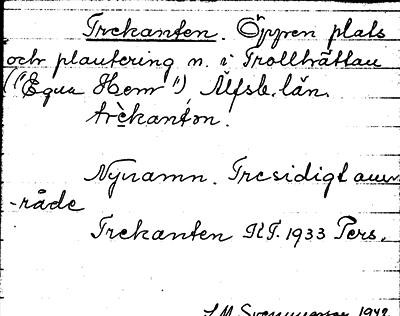 Trekanten. Öppen plats
och plantering n. i Trollhättan
("Egna Hem") Älfsb. län.
trèkantən.
Nynamn. Tresidigt om-
-råde
Trekanten RT. 1933 Pers.
1942